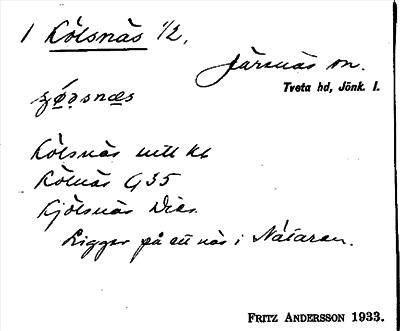 1 Kölsnäs 1/2,
Järsnäs sn.
Tveta hd, Jönk. l.
Kölsnäs uttl Kb
Kölnäs G 35
Kjölsnäs Dias.
Ligger på ett näs i Nätaren.
FRITZ ANDERSSON 1933.